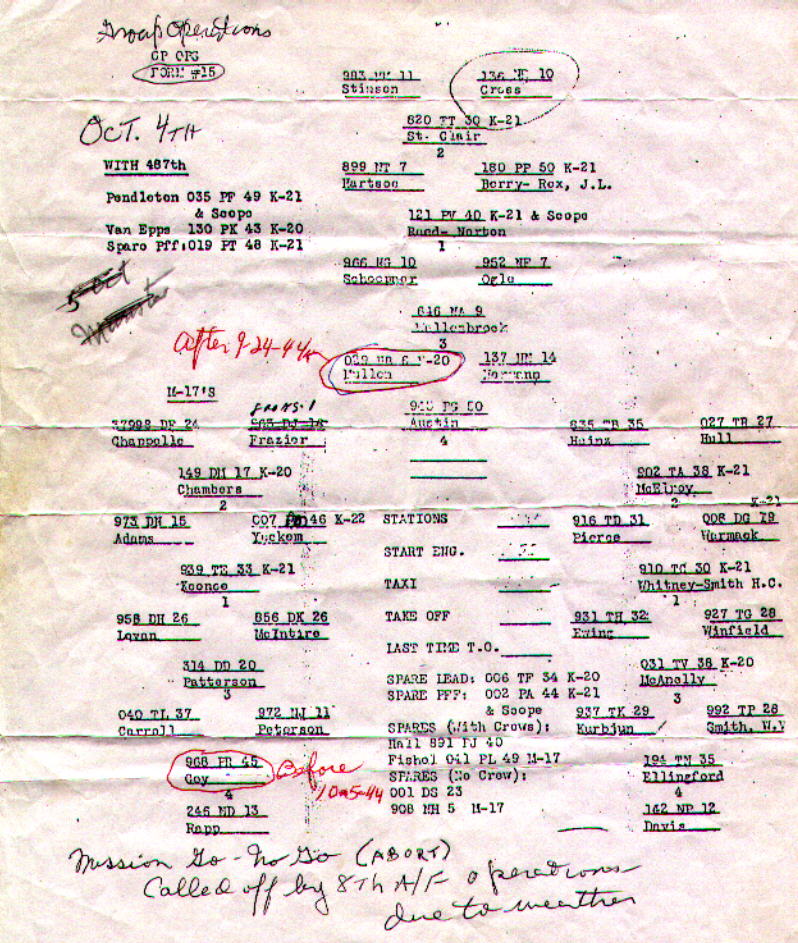 Group Operations
GP OPS
FORM #15
983 11
136 10
Stinson
Cross
OCT. 4TH
820 TT 30 K-21
St. Clair
2
WITH 487th
899 NT 7
180 PP 50 K-21
Hartsoe
Berry- Rex, J.L.
Pendleton 035 PF 49 K-21
& Scope
121 PV 40 K-21 & Scope
Van Epps 130 PK 43 K-20
Reed- Norton
Spare Pff:019 PT 48 K-21
1
966 NG 10
952 NF 7
5 Oct
Schoepner
Ogle
Munster
646 NA 9
3
After 9-24-44
K-20
137 14
Mullen
M-17'S
PG 50
37998 DF 24
Austin
835 TB 35
027 TR 27
Chappelle
Frazier
4
Heinz
Hull
149 DM 17 K-20
902 TA 38 K-21
Chambers
McElroy
2
2
K-21
973 DN 15
007 46 K-22
STATIONS
916 TD 31
006 DG 19
Adams
Yockom
Pierce
Warmack
START ENG.
939 TE 33 K-21
910 TC 30 K-21
Koonce
TAXI
Whitney-Smith H.C.
1
1
958 DH 26
856 DK 26
TAKE OFF
931 TH 32
927 TG 28
Lovan
McIntire
Ewing
Winfield
LAST TIME T.O.
314 DD 20
031 TV 38 K-20
Patterson
SPARE LEAD: 006 TF 34 K-20
McAnelly
3
SPARE PFF: 002 PA 44 K-21
3
& Scope
040 TL 37
972 NJ 11
937 TK 29
992 TP 28
Carroll
Peterson
SPARES (With Crews):
Kurbjun
Smith, W.V
Hall 891 PJ 40
968 PR 45
Before
Fishel 041 PL 49 M-17
194 TN 35
Coy
10-5-44
SPARES (No Crew):
Ellingford
4
001 DS 23
4
246 ND 13
908 NH 5 M-17
142 NP 12
Rapp
Davis
Mission Go - No Go (ABORT)
Called off by 8TH A/F operations
due to weather